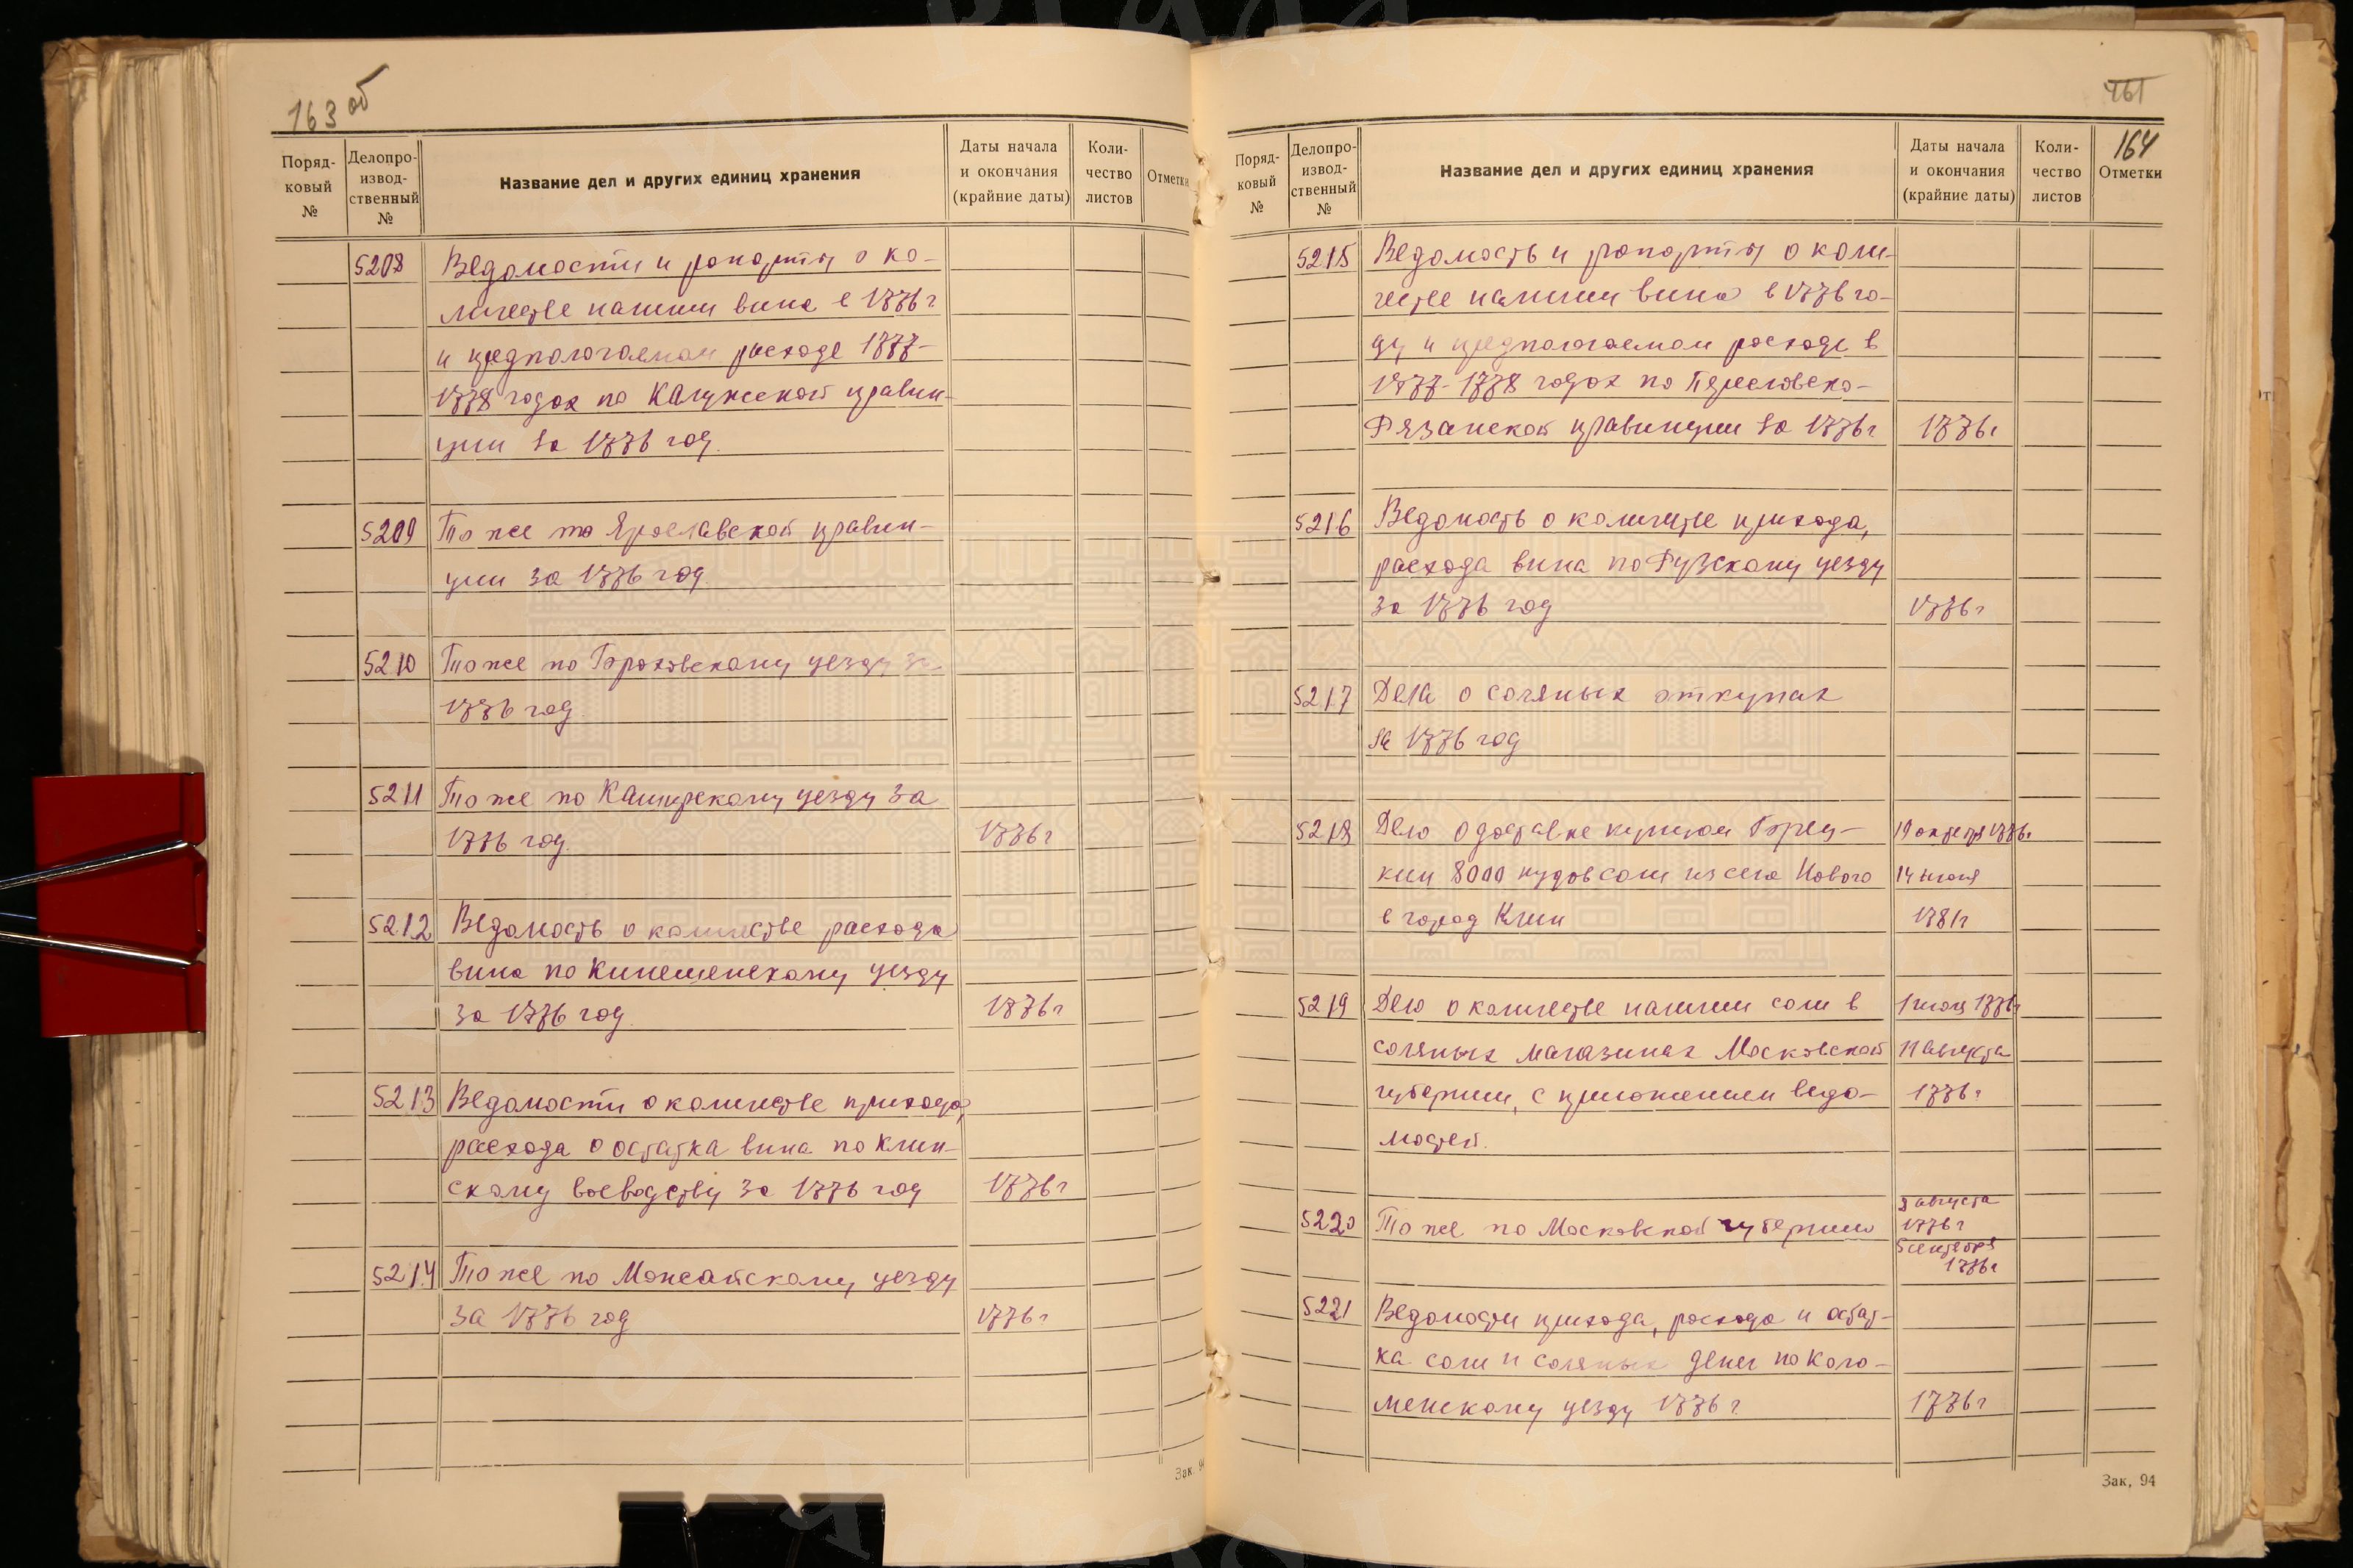 163 об
Поряд-
ковый
№
Делопро-
извод-
ственный
№
Название дел и других единиц хранения
Даты начала
и окончания
(крайние даты)
Коли-
чество
листов
Отметки
5208 Ведомости и рапорты о ко-
личестве налички вина в 1776 г
и предпологаемом расходе 1777-
1778 годах по Калужской правин-
ции за 1776 год.
5209 То же по Ярославской правин-
ции за 1776 год
5210 То же по Гороховскому уезду за
1776 год
5211 То же по Каширскому уезду за
1776 год. 1776 г
5212 Ведомость о количестве расхода
вина по Кинешенскому уезду
за 1776 год. 1776 г
5213 Ведомости о количестве прихода,
расхода о остатка вина по Клин-
скому воеводству за 1776 год 1776 г
5214 То же по Можайскому уезду
за 1776 год 1776 г
Зак. 94
461
164
Поряд-
ковый
№
Делопро-
извод-
ственный
№
Название дел и других единиц хранения
Даты начала
и окончания
(крайние даты)
Коли-
чество
листов
Отметки
5215 Ведомость и рапорты о коли-
честве налички вина в 1776 го-
ду и предпологаемом расходе в
1777-1778 годах по Переславско-
Рязанской правинции за 1776 г 1776 г
5216 Ведомость о количестве прихода,
расхода вина по Рузскому уезду
за 1776 год 1776 г
5217 Дела о соляных откупах
за 1776 год
5218 Дело о доставке купцом Горец- 19 апреля 1776 г
ким 8000 пудов соли из села Нового 14 июля
в город Клин 1781 г
5219 Дело о количестве налички соли в 1 июля 1776 г
соляных магазинах Московской 11 августа
губернии, с приложением ведо- 1776 г
мостей.
3 августа
5220 То же по Московской губернии 1776 г
5 сентября
1776 г
5221 Ведомости прихода, расхода и остат-
ка соли и соляных денег по Коло-
менскому уезду 1776 г 1776 г
Зак, 94